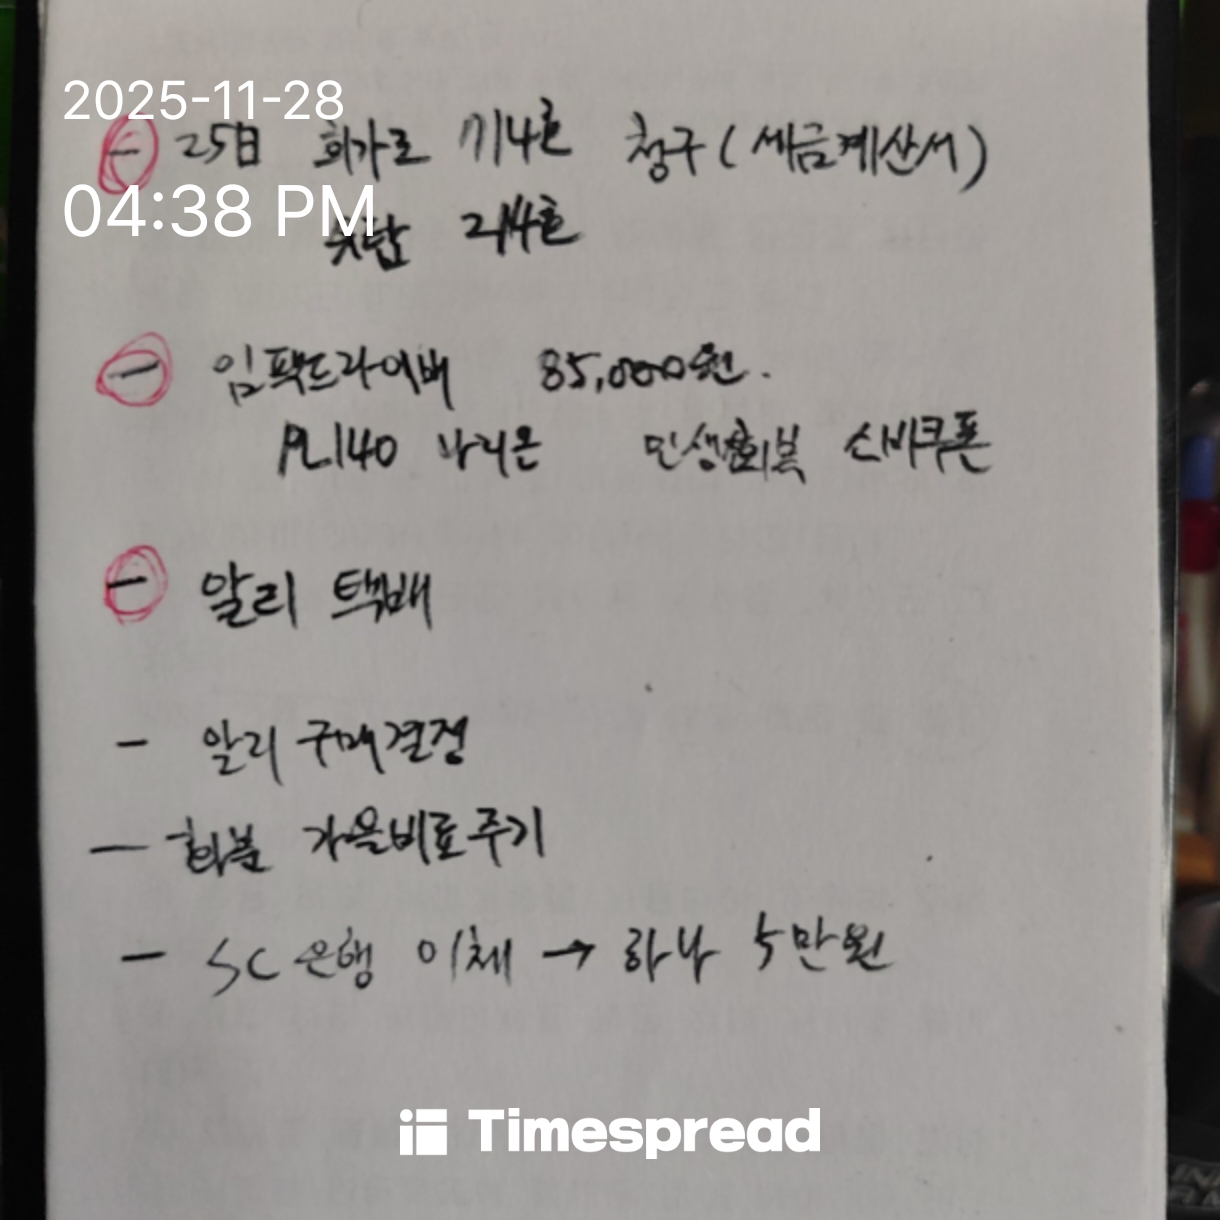 2025-11-28
- 25日 화가로 기4호 청구 (세금계산서)
04:38 PM
214호
- 임팩드라이버 85,000원.
PL140 나리온 민생회복 소비쿠폰
- 알리 택배
- 알리 구매결정
- 화분 가을비료주기
- SC은행 이체 → 하나 5만원
Timespread